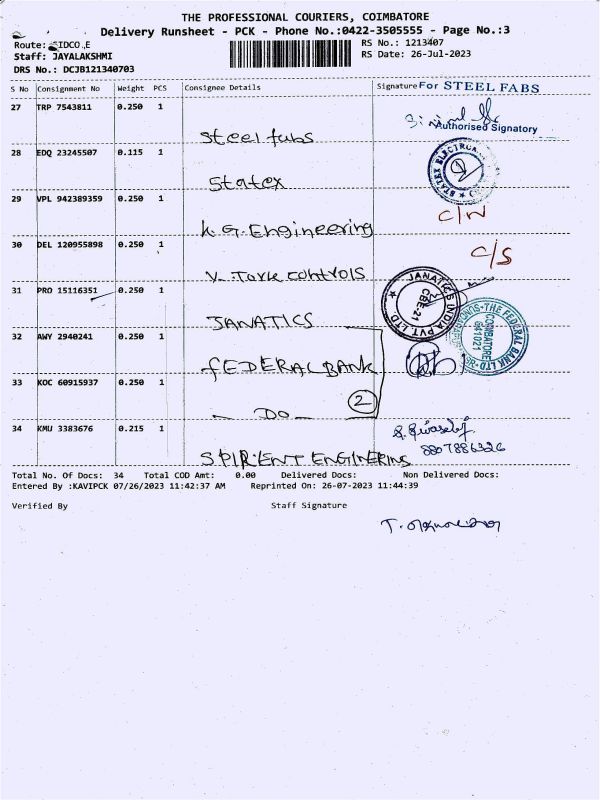 THE PROFESSIONAL COURIERS, COIMBATORE
Delivery Runsheet - PCK - Phone No.:0422-3505555 - Page No.:3
Route: SIDCO.,E
RS No.: 1213407
Staff: JAYALAKSHMI
RS Date: 26-Jul-2023
DRS No.: DCJB121340703
S No Consignment No Weight PCS Consignee Details Signature For STEEL FABS
27 TRP 7543811 0.250 1
Authorised Signatory
Steel fabs
28 EDQ 23245507 0.115 1
Statex
29 VPL 942389359 0.250 1 C/N
K. G. Engineering
30 DEL 120955898 0.250 1 C/S
V. Tork controls
31 PRO 15116351 0.250 1
JANATICS INDIA PVT. LTD
CBE-21
JANATICS
32 AWY 2940241 0.250 1
THE FEDERAL BANK LTD
COIMBATORE
641021
FEDERAL BANK
33 KOC 60915937 0.250 1
2
- DO -
34 KMU 3383676 0.215 1
8807886326
SPIRIENT ENGINERING
Total No. Of Docs: 34 Total COD Amt: 0.00 Delivered Docs: Non Delivered Docs:
Entered By :KAVIPCK 07/26/2023 11:42:37 AM Reprinted On: 26-07-2023 11:44:39
Verified By Staff Signature